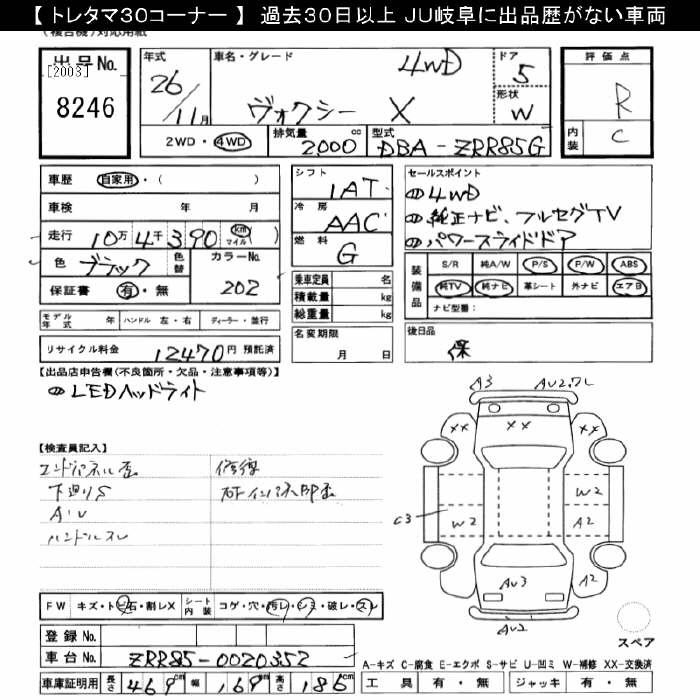 【 トレタマ３０コーナー 】 過去３０日以上 ＪＵ岐阜に出品歴がない車両
(複合機)対応用紙
出品No.
[2003]
8246
年式
26/11月
車名・グレード
4WD
ヴォクシー X
ドア
5
形状
W
2WD・4WD
排気量
2000 cc
型式
DBA-ZRR85G
評価点
R
内装
C
車歴 自家用・( )
車検 年 月
走行 10万4千390 km マイル( )
色 ブラック 色替
カラーNo.
202
保証書 有・無
モデル年式 年 ハンドル 左・右 ディーラー・並行
リサイクル料金 12470円 預託済
シフト
IAT
冷房
AAC
燃料
G
乗車定員 名
積載量 kg
総重量 kg
名変期限
月 日
セールスポイント
①4WD
②純正ナビ、フルセグTV
③パワースライドドア
装備品
S/R 純A/W P/S P/W ABS
純TV 純ナビ 革シート 外ナビ エアB
ナビ型番:
後日品
保
【出品店申告欄(不良箇所・欠品・注意事項等)】
① LEDヘッドライト
【検査員記入】
エンドパネル歪
下廻りS
A・U
ハンドルスレ
修復
A3
AU2.ワレ
XX
XX
XX
W2
C3
W2
A2
AU3
A2
AU2
スペア
FW キズ・トビ石・割レX
シート内装 コゲ・穴・汚レ・シミ・破レ・スレ
登録No.
車台No. ZRR85-0020352
車庫証明用 長さ 469cm 幅 169cm 高さ 186cm
A-キズ C-腐食 E-エクボ S-サビ U-凹ミ W-補修 XX-交換済
工具 有・無 ジャッキ 有・無